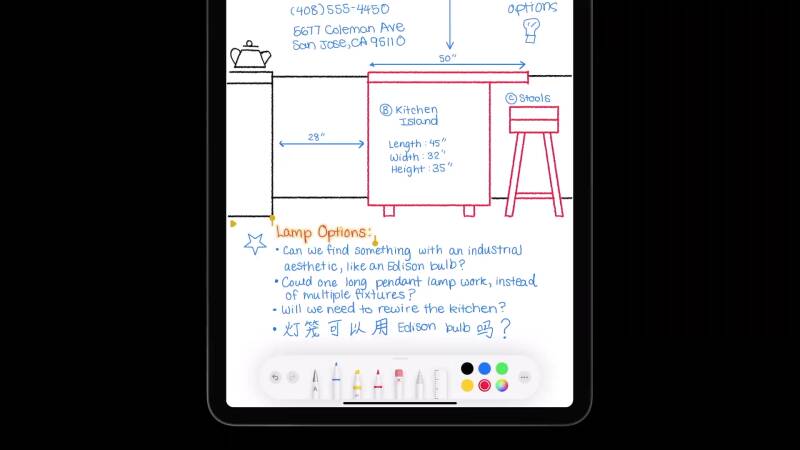 (408)555-4450
options
5677 Coleman Ave
San Jose, CA 95110
50"
Ⓒ Stools
Ⓑ Kitchen
Island
28"
Length: 45"
Width: 32"
Height: 35"
Lamp Options:
• Can we find something with an industrial
aesthetic, like an Edison bulb?
• Could one long pendant lamp work, instead
of multiple fixtures?
• Will we need to rewire the kitchen?
• 灯笼可以用 Edison bulb 吗?
A